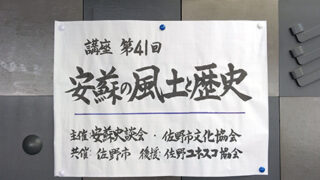 講座 第41回
安蘇の風土と歴史
主催:安蘇史談会・佐野市文化協会
共催:佐野市 後援:佐野ユネスコ協会